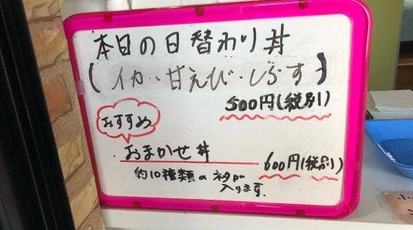 本日の日替わり丼
(イカ・甘えび・しらす)
500円(税別)
おすすめ
おまかせ丼
600円(税別)
約10種類のネタが
入ります.